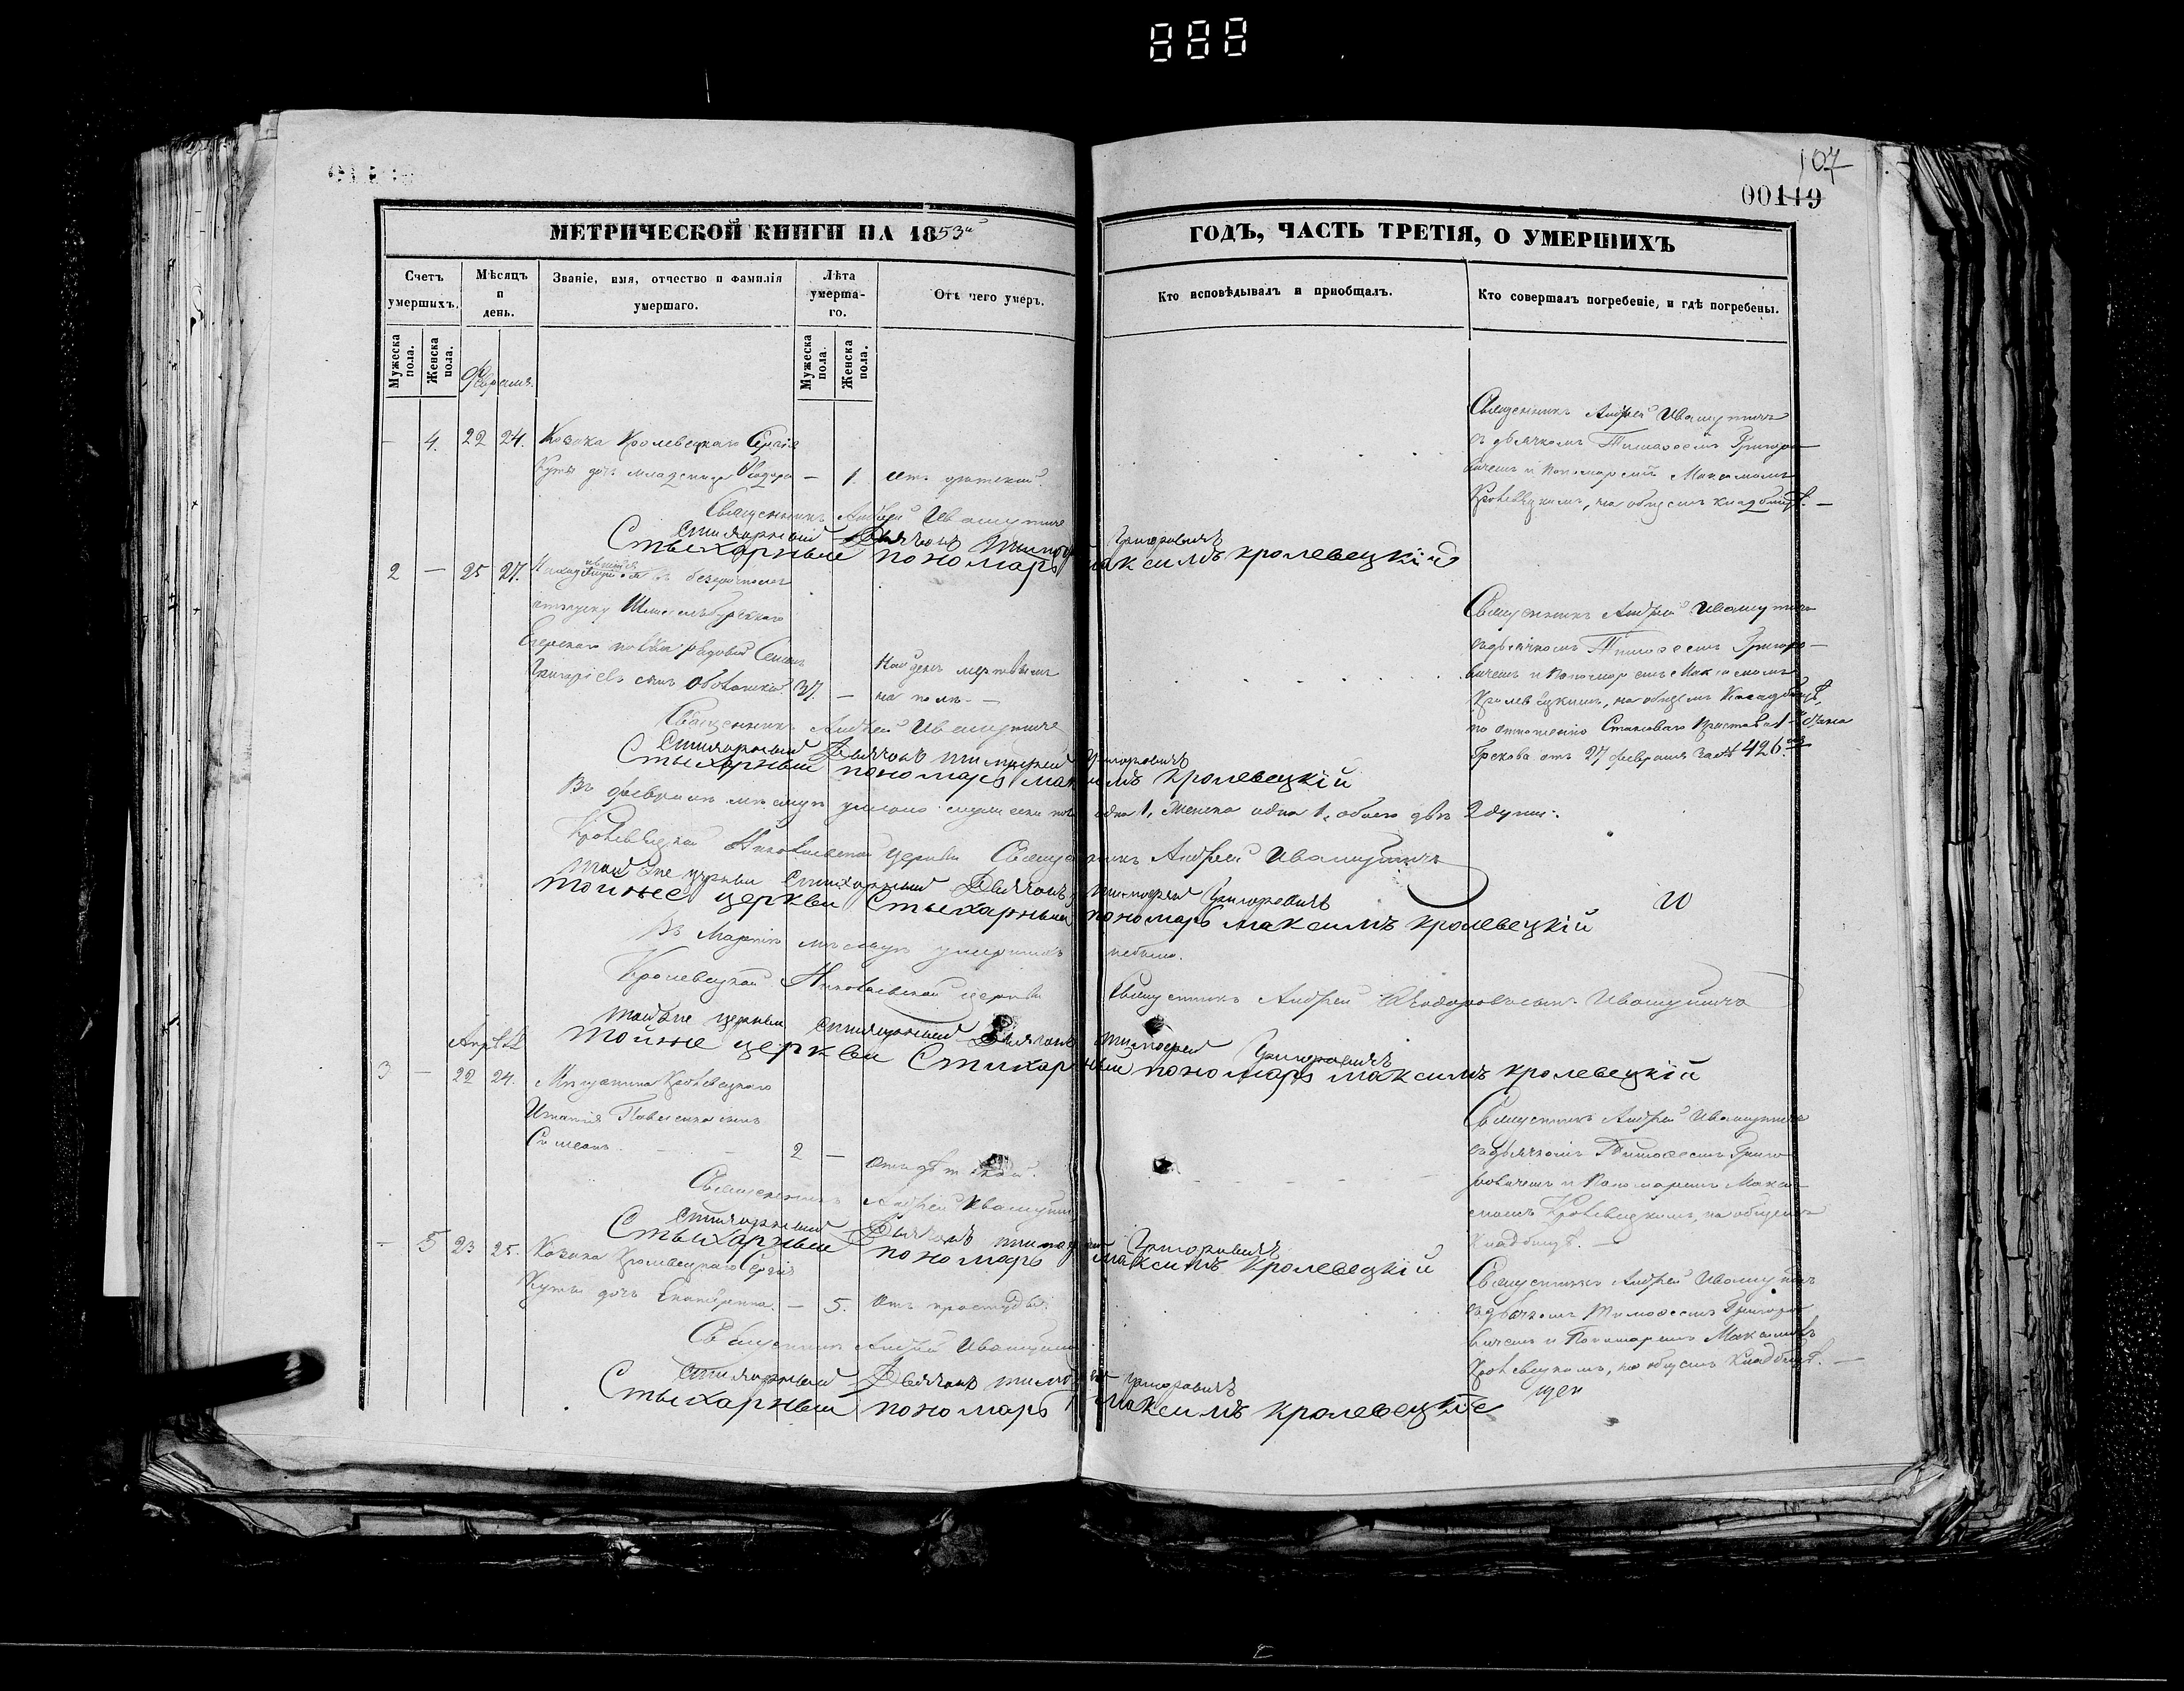 107
00119
МЕТРИЧЕСКОЙ КНИГИ НА 1853й
ГОДЪ, ЧАСТЬ ТРЕТІЯ, О УМЕРШИХЪ
Счетъ умершихъ.
Мѣсяцъ и день.
Званіе, имя, отчество и фамилія умершаго.
Лѣта умерша-го.
Отъ чего умеръ.
Кто исповѣдывалъ и приобщалъ.
Кто совершалъ погребеніе, и гдѣ погребены.
Мужеска пола.
Женска пола.
Мужеска пола.
Женска пола.
Февраль.
— 4. 22 24. Козака Кролевецкаго Сергія
Куты дочь младенца — 1. отъ
Священникъ Андрей Ивашутичь
съ дьячкомъ Тимофеемъ Григоро
вичемъ и Пономаремъ Максимомъ
Кролевецкимъ, на общемъ кладбищѣ. —
Священникъ Андрей Ивашутичь
Стихарный Дьячокъ Тимофей Григоровичъ
Стыхарный пономарь Максимъ кролевецкій
2 — 25 27. въ безсрочномъ
отпуску Шлисельбургскаго
Егерскаго полка рядовой Семенъ
Григоріевъ сынъ 37. —
Найденъ мертвымъ
на полѣ. —
Священникъ Андрей Ивашутичь
съ дьячкомъ Тимофеемъ Григоро—
вичемъ и Пономаремъ Максимомъ
Кролевецкимъ, на общемъ Кладбищѣ,
по отношенію Становаго Пристава 1 Стана
Грекова отъ 27 февраля за № 426.
Священникъ Андрей Ивашутичь
Стихарный Дьячокъ Тимофей Григоровичъ
Стыхарный пономарь Максимъ Кролевецкій
Въ февралѣ мѣсяцѣ умерло мужеска пола одна 1, Женска одна 1, обоего двѣ 2 души.
Кролевецкой Николаевской Церкви Священникъ Андрей Ивашутичь
Той же церкви Стихарный Дьячокъ Тимофей Григоровичъ
Тойже церкви Стыхарный пономарь Максимъ кролевецкій
Въ Мартѣ мѣсяцѣ умершихъ небыло.
Кролевецкой Николаевской церкви Священникъ Андрей Ивашутичь
Той же церкви Стихарный Дьячокъ Тимофей Григоровичъ
Тойже церкви Стихарный пономарь Максимъ кролевецкій
Апрѣль
3 — 22 24. Мѣщанина Кролевецкаго
Игнатія сынъ
Симеонъ. 2 — отъ
Священникъ Андрей Ивашутичь
съ дьячкомъ Тимофеемъ Григо
ровичемъ и Пономаремъ Макси
момъ Кролевецкимъ, на общемъ
Кладбищѣ. —
Священникъ Андрей Ивашутичь
Стихарный Дьячокъ Тимофей Григоровичъ
Стыхарный пономарь Максимъ кролевецкій
— 5 23 25. Козака Кролевецкаго Сергія
Куты дочь Екатерина. — 5. Отъ простуды.
Священникъ Андрей Ивашутичь
съ дьячкомъ Тимофеемъ Григоро
вичемъ и Пономаремъ Максимомъ
Кролевецкимъ, на общемъ Кладбищѣ. —
Священникъ Андрей Ивашутичь
Стихарный Дьячокъ Тимофей Григоровичъ
Стыхарный пономарь Максимъ кролевецкій